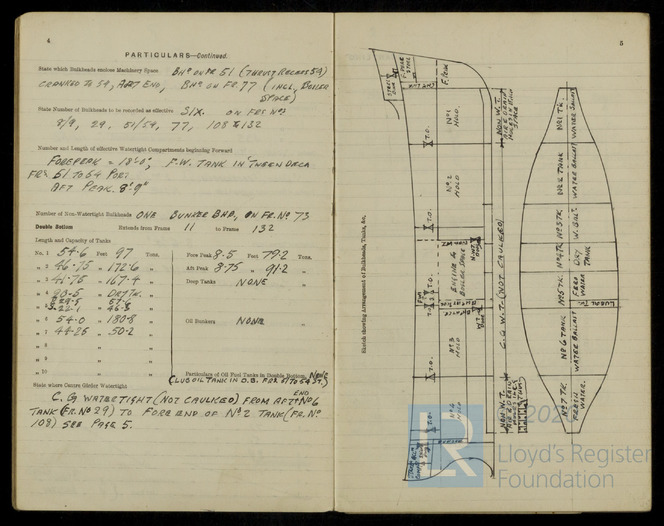 4
PARTICULARS—Continued.
State which Bulkheads enclose Machinery Space BHD ON FR. 51 (THRUST RECESS 59)
CRANKED TO 59, AFT END, BHD ON FR 77 (INCL. BOILER
SPACE)
State Number of Bulkheads to be recorded as effective SIX. ON FRS NOS
8/9, 29, 51/59, 77, 108 & 132
Number and Length of effective Watertight Compartments beginning Forward
FOREPEAK = 18'0", F.W. TANK IN 'TWEEN DECK
FRS 51 TO 54 PORT
AFT PEAK. 8'9"
Number of Non-Watertight Bulkheads ONE BUNKER BHD, ON FR. NO 73
Double Bottom Extends from Frame 11 to Frame 132
Length and Capacity of Tanks
No. 1 54.6 Feet 97 Tons.
" 2 46.75 " 172.6
" 3 41.75 " 167.4
" 4 20.5 " DRY TK.
" 5
" 6 54.0 " 180.8
" 7 44.25 " 50.2
" 8
" 9
" 10
Fore Peak 8.5 Feet 79.2 Tons.
Aft Peak 8.75 " 91.2 "
Deep Tanks NONE
Oil Bunkers NONE
Particulars of Oil Fuel Tanks in Double Bottom. NONE
(LUB OIL TANK IN D.B. FOR 51 TO 54 ST.)
State where Centre Girder Watertight
C.G. WATERTIGHT (NOT CAULKED) FROM AFT END NO 6
TANK (FR. NO 29) TO FORE END OF NO 2 TANK (FR. NO
108) SEE PAGE 5.
5
Sketch showing Arrangement of Bulkheads, Tanks, &c.
F. PEAK
NO 1 HOLD
NO. 2 HOLD
ENGINE & BOILER SPACE
NO. 3 HOLD
NO. 4 HOLD
T.D.
T.D.
T.D.
T.D.
NON W.T.
C.G. W.T. (NOT CAULKED)
NON W.T.
NO 1 TK. WATER BALLAST
NO 2 TANK WATER BALLAST
NO 3 TK. W. BAL.
NO 4 TK DRY TANK
NO 5 TK. FEED WATER
LUB OIL TK.
NO. 6 TANK WATER BALLAST
NO 7 TK. FRESH WATER.
LR
© 2020
Lloyd's Register
Foundation